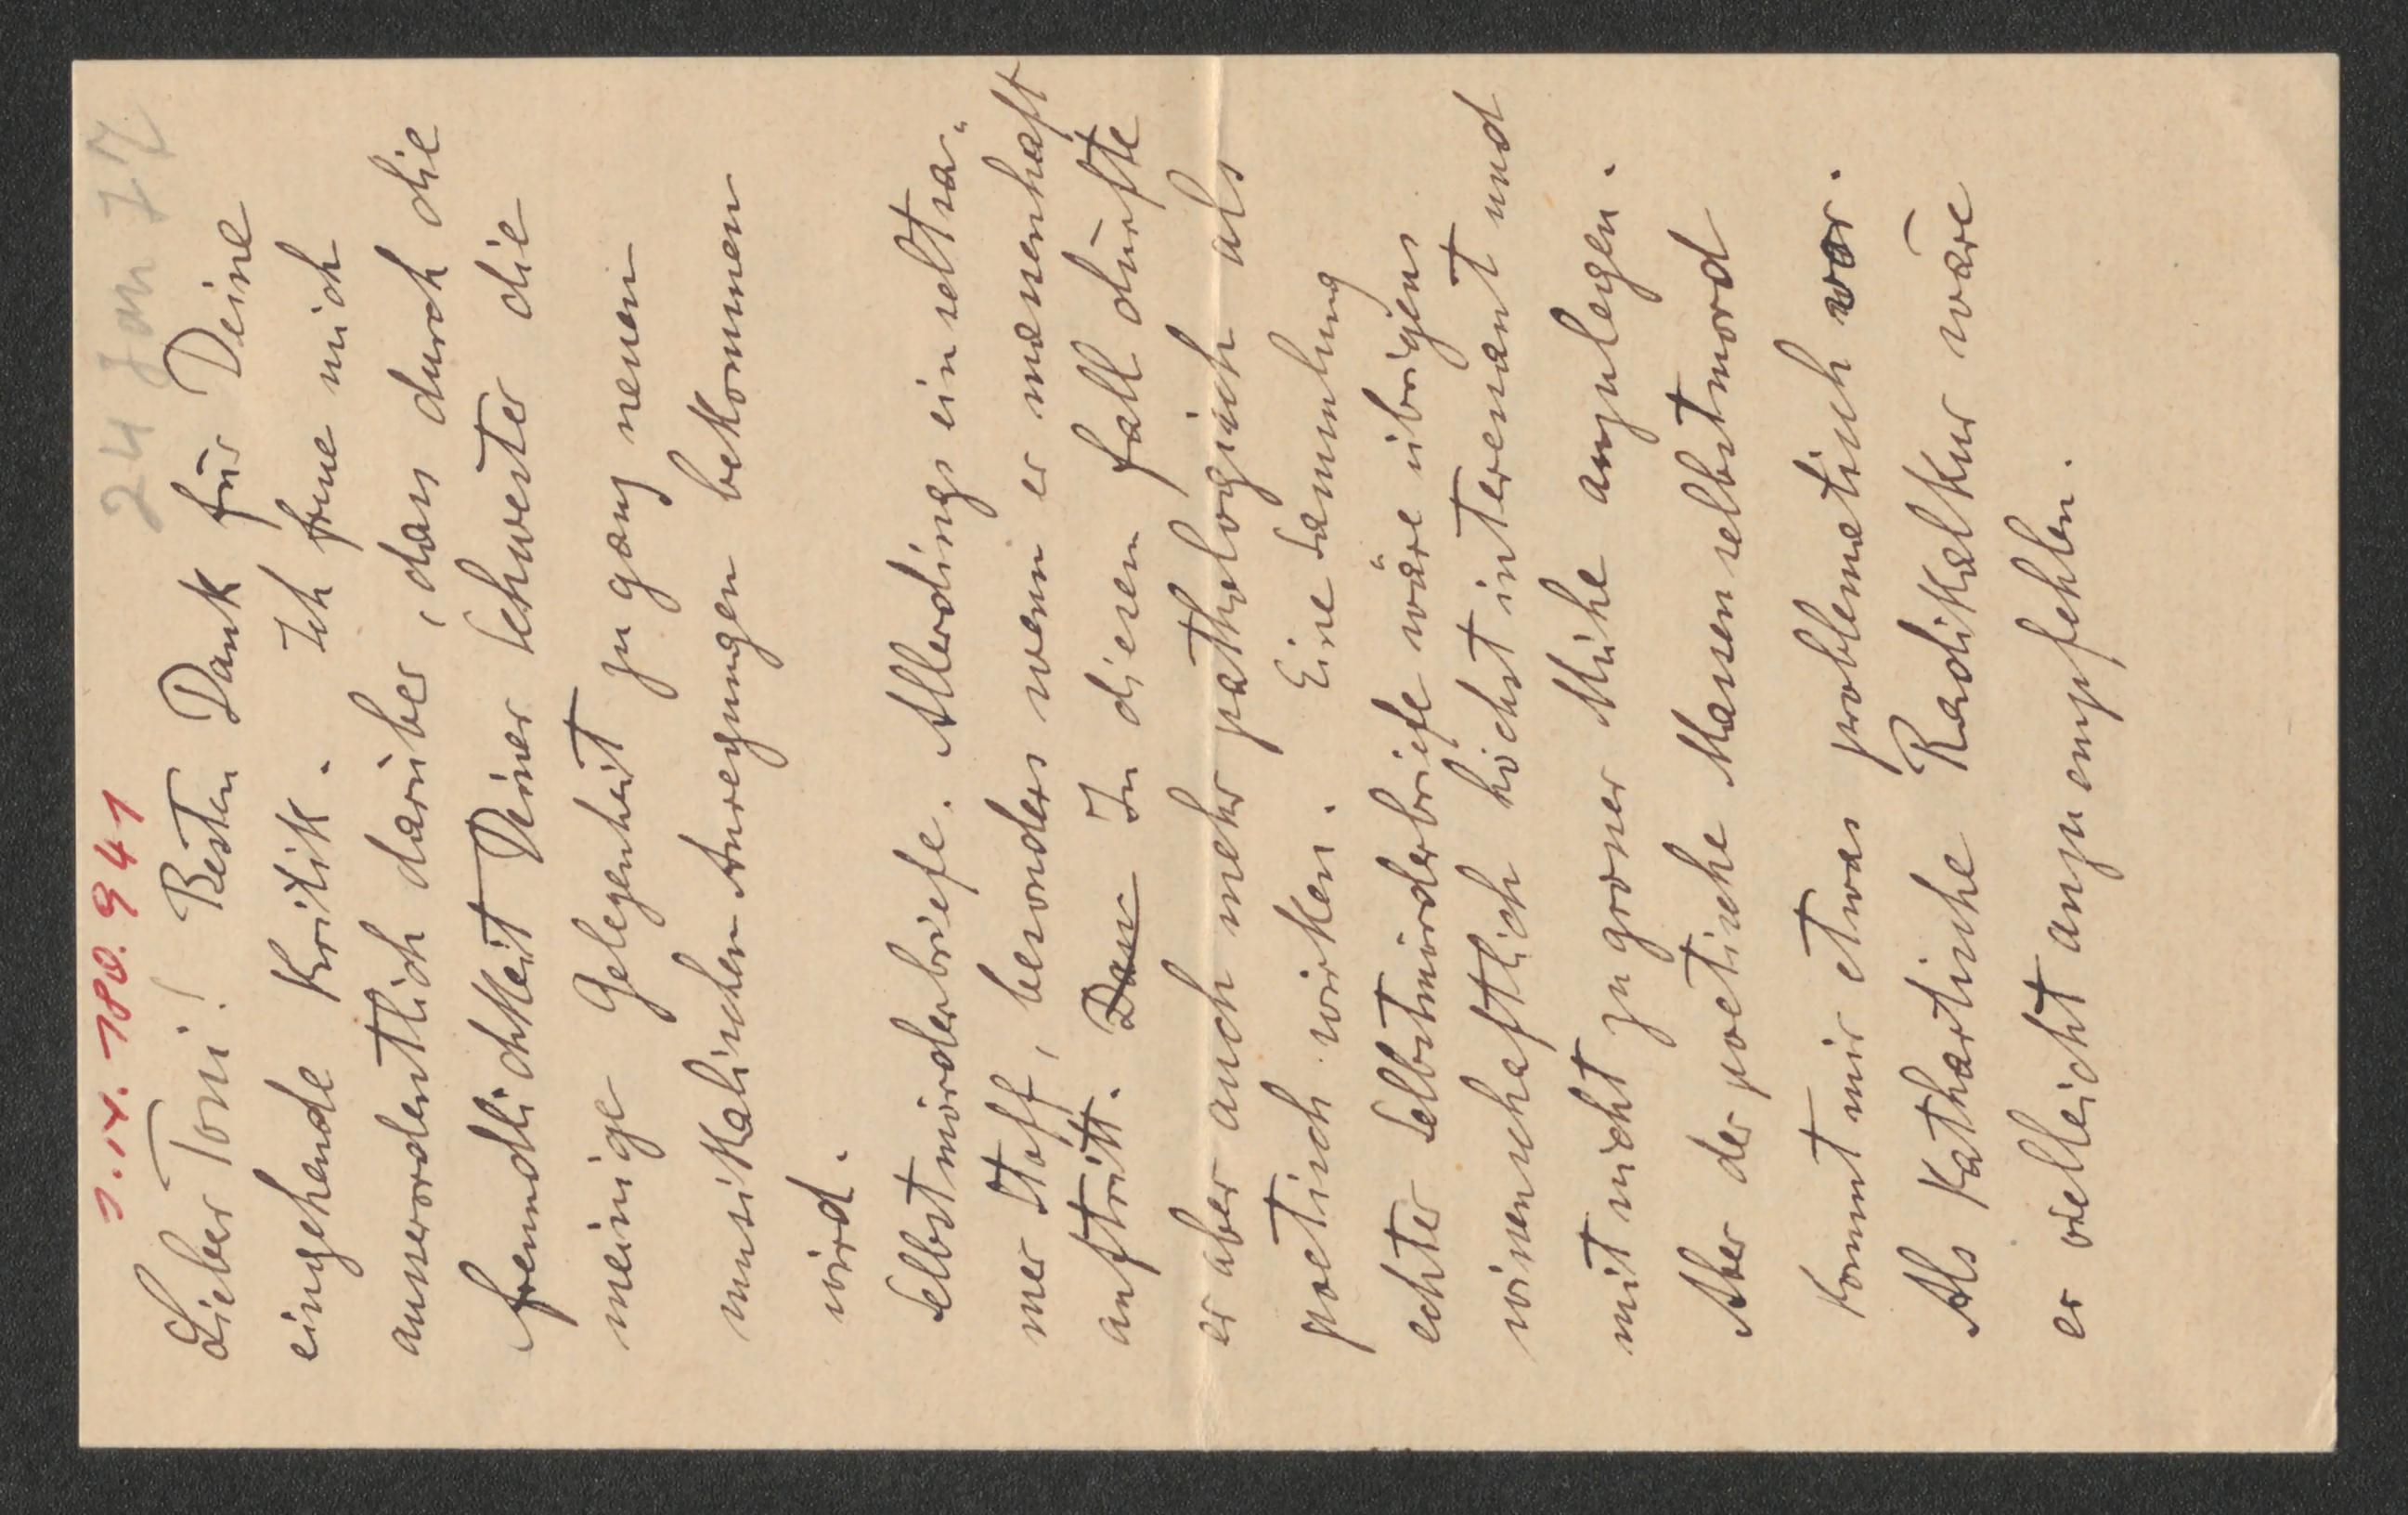 24 Jan 27
J. N. 780.941
Lieber Toni! Besten Dank für Deine
eingehende Kritik. Ich freue mich
ausserordentlich darüber, dass durch die
freundlichkeit Deiner Schwester die
meinige Gelegenheit zu ganz neuen
musikalischen Anregungen bekommen
wird.
Selbstmörderbriefe. Allerdings ein seltsa-
mer Stoff, besonders wenn er massenhaft
auftritt. Dann In diesen fall dürfte
er aber auch mehr pathologisch als
poetisch wirken. Eine Sammlung
echter Selbstmörderbriefe wäre übrigens
wissenschaftlich höchst interessant und
mit nicht zu grosser Mühe anzulegen.
Aber der poetische Massenselbstmord
kommt mir etwas problematisch vor.
Als Kathartische Radikalkur wäre
er vielleicht anzuempfehlen.